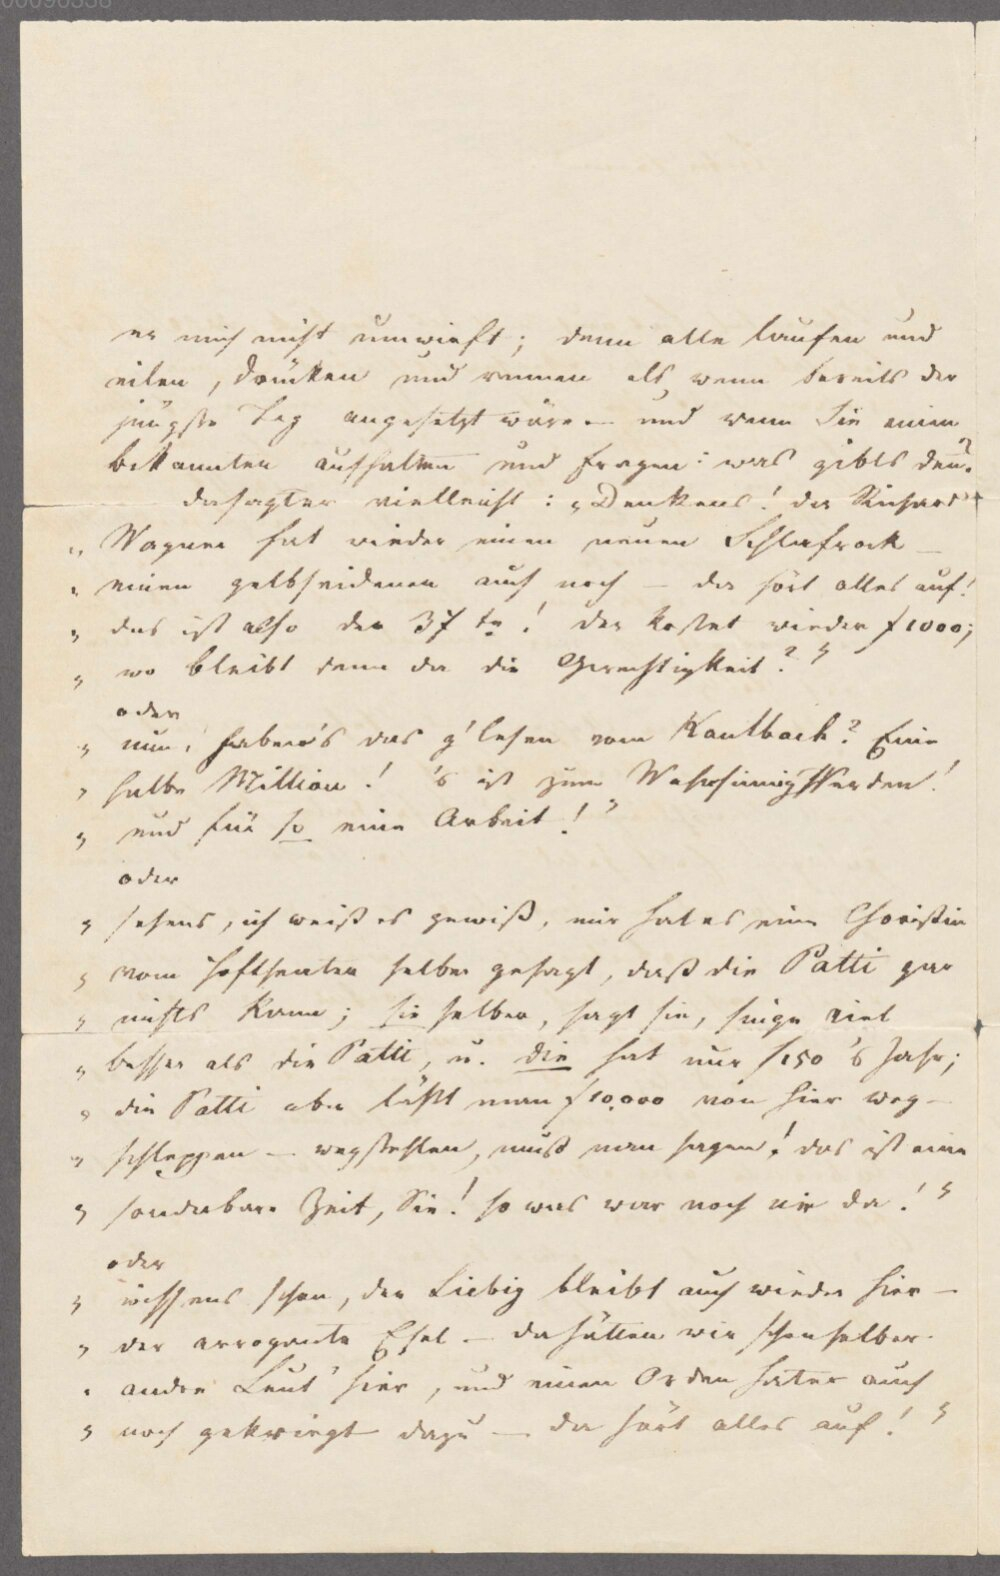 er mich nicht umwirft; denn alle laufen und
eilen, drücken und rennen als wenn bereits der
jüngste Tag angesetzt wäre – und wenn Sie einen
bekannten aufhalten und fragen: was gibts den?
da sagt er vielleicht: „Denkens! der Richard
„ Wagner hat wieder einen neuen Schlafrock –
„ einen gelbseidenen auch noch – da hört alles auf!
„ das ist also der 37te! der kostet wieder f 1000;
„ wo bleibt denn da die Gerechtigkeit?"
oder
„ nun, haben's das g'lesen vom Kaulbach? Eine
„ halbe Million! 's ist zum Wahnsinnig Werden!
„ und für so eine Arbeit!"
oder
„ sehens, ich weiß es gewiß, mir hat es eine Choristin
„ vom Hoftheater selber gesagt, daß die Patti gar
„ nichts kann; sie selber, sagt sie, singe viel
„ besser als die Patti, u. die hat nur f 150 's Jahr;
„ die Patti aber läßt man f 10,000 von hier weg-
„ schleppen – wegstehlen, muß man sagen! das ist eine
„ sonderbare Zeit, Sie! so was war noch nie da!"
oder
„ wissens schon, der Liebig bleibt auch wieder hier –
„ der arrogante Esel – da hätten wir schon selber
„ andre Leut' hier, und einen Orden hat er auch
„ noch gekriegt dazu – da hört alles auf!"